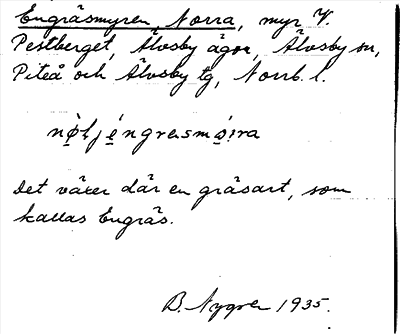 Engräsmyren, Norra, myr V.
Pestberget, Älvsby ägor, Älvsby sn,
Piteå och Älvsby tg, Norrb. l.
Det växer där en gräsart, som
kallas Engräs.
B. Nygren 1935.